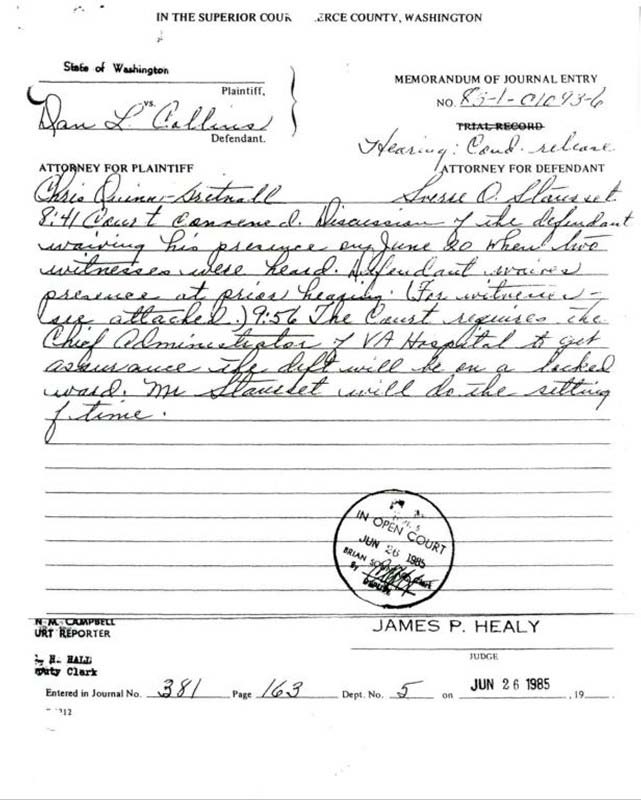 IN THE SUPERIOR COUR ERCE COUNTY, WASHINGTON
State of Washington
Plaintiff,
vs.
Dan L. Collins
Defendant.
MEMORANDUM OF JOURNAL ENTRY
NO. 83-1-01093-6
TRIAL RECORD
Hearing: Cond. release
ATTORNEY FOR PLAINTIFF
ATTORNEY FOR DEFENDANT
Chris Quinn-Bretnall
Sverse O. Stausset
8:41 Court Convened. Discussion of the defendant
waiving his presence on June 20 when two
witnesses were heard. Defendant waives
presence at prior hearing. (For witness-
see attached.) 9:56 The Court requires the
Chief Administrator of VA Hospital to get
assurance the deft will be on a locked
ward. Mr Stausset will do the setting
of time.
IN OPEN COURT
JUN 26 1985
BRIAN
By
N. M. CAMPBELL
URT REPORTER
JAMES P. HEALY
JUDGE
H. HALL
puty Clerk
Entered in Journal No. 381 Page 163 Dept. No. 5 on JUN 26 1985, 19
312